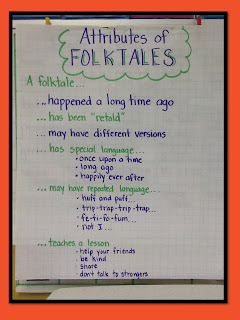 Attributes of
FOLKTALES
A folktale...
...happened a long time ago
...has been "retold"
...may have different versions
...has special language...
• once upon a time
• long ago
• happily ever after
...may have repeated language...
• huff and puff...
• trip-trap-trip-trap...
• fe-fi-fo-fum...
• not I...
...teaches a lesson
• help your friends
• be kind
• share
• don't talk to strangers